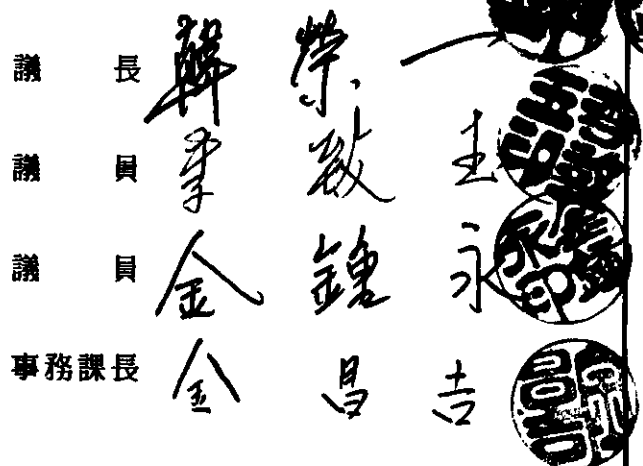 議長 韓榮
議員 李敎圭
議員 金鍾永
事務課長 金昌吉